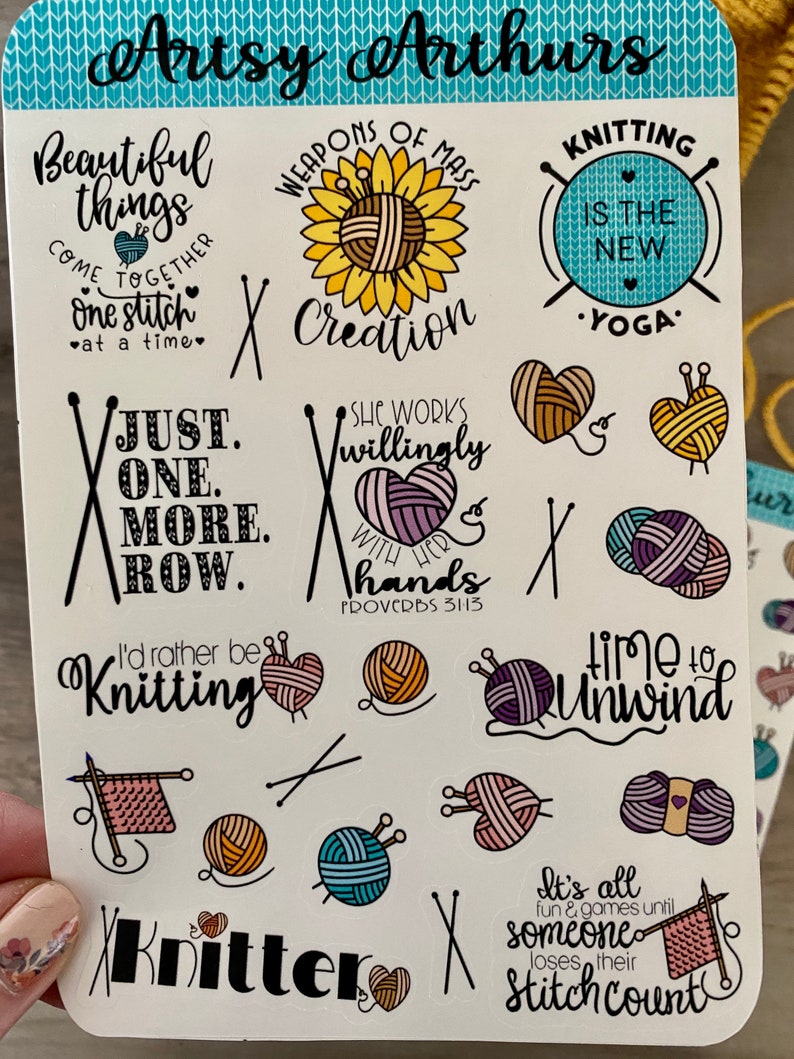 Artsy Arthurs
Beautiful
things
COME TOGETHER
one stitch
at a time
WEAPONS OF MASS
Creation
KNITTING
IS THE
NEW
YOGA
JUST.
ONE.
MORE.
ROW.
SHE WORKS
willingly
WITH HER
hands
PROVERBS 31:13
I'd rather be
Knitting
time to
Unwind
Knitter
It's all
fun & games until
someone
loses their
Stitch count